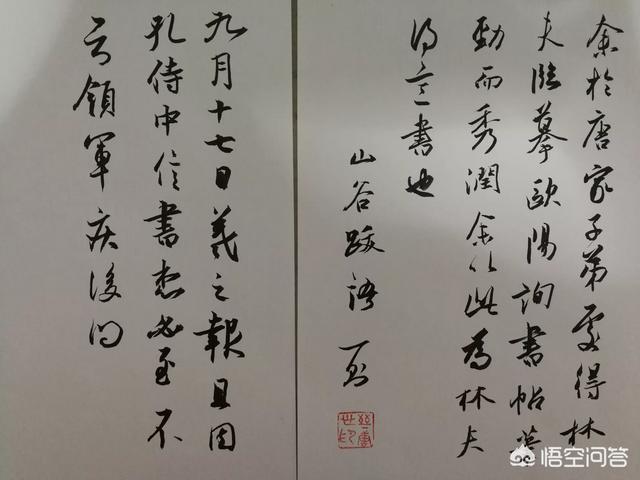 余於唐家子弟處得林
夫臨摹歐陽詢書帖英
勁而秀潤余以此為林夫
得意書也
山谷跋語
九月十七日羲之報且因
孔侍中信書想必至不
知領軍疾後問
悟空问答